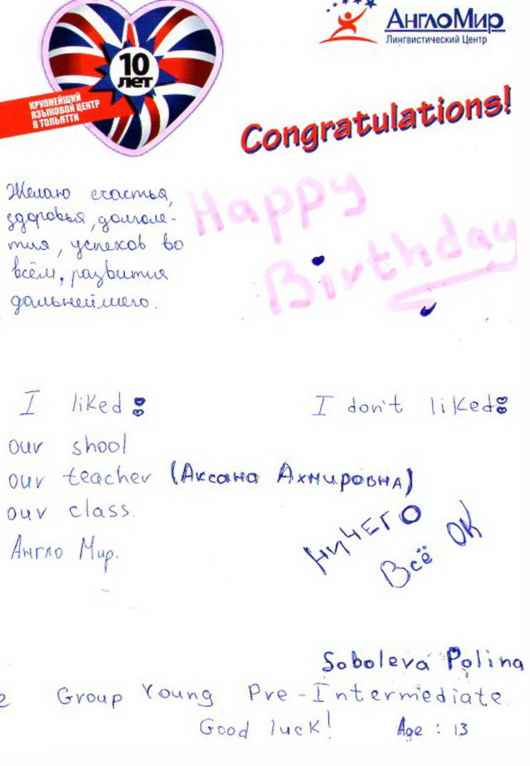 10
ЛЕТ
КРУПНЕЙШИЙ
ЯЗЫКОВОЙ ЦЕНТР
В ТОЛЬЯТТИ
АнглоМир
Лингвистический Центр
Congratulations!
Желаю счастья,
здоровья, долголе-
тия, успехов во
всём, развития
дальнейшего.
Happy
Birthday
I liked:
our shool
our teacher (Аксана Ахмировна)
our class.
Англо Мир.
I don't liked:
НИЧЕГО
Всё ОК
Soboleva Polina
e Group Young Pre-Intermediate
Good luck! Age : 13